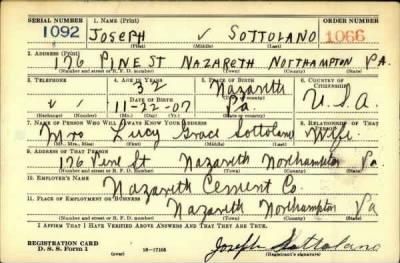 SERIAL NUMBER 1. NAME (Print) ORDER NUMBER
1092 JOSEPH V SOTTOLANO 1066
(First) (Middle) (Last)
2. ADDRESS (Print)
176 PINE ST NAZARETH NORTHAMPTON PA.
(Number and street or R. F. D. number) (Town) (County) (State)
3. TELEPHONE 4. AGE IN YEARS 5. PLACE OF BIRTH 6. COUNTRY OF CITIZENSHIP
32 Nazareth
DATE OF BIRTH
11-22-07 Pa. U.S.A.
(Exchange) (Number) (Mo.) (Day) (Yr.) (State or country)
7. NAME OF PERSON WHO WILL ALWAYS KNOW YOUR ADDRESS 8. RELATIONSHIP OF THAT PERSON
Mrs Lucy Grace Sottolano Wife
(Mr., Mrs., Miss) (First) (Middle) (Last)
9. ADDRESS OF THAT PERSON
176 Pine St Nazareth Northampton Pa
(Number and street or R. F. D. number) (Town) (County) (State)
10. EMPLOYER'S NAME
Nazareth Cement Co.
11. PLACE OF EMPLOYMENT OR BUSINESS
Nazareth Northampton Pa
(Number and street or R. F. D. number) (Town) (County) (State)
I AFFIRM THAT I HAVE VERIFIED ABOVE ANSWERS AND THAT THEY ARE TRUE.
REGISTRATION CARD
D. S. S. Form 1 16-17105 Joseph Sottolano
(Registrant's signature)